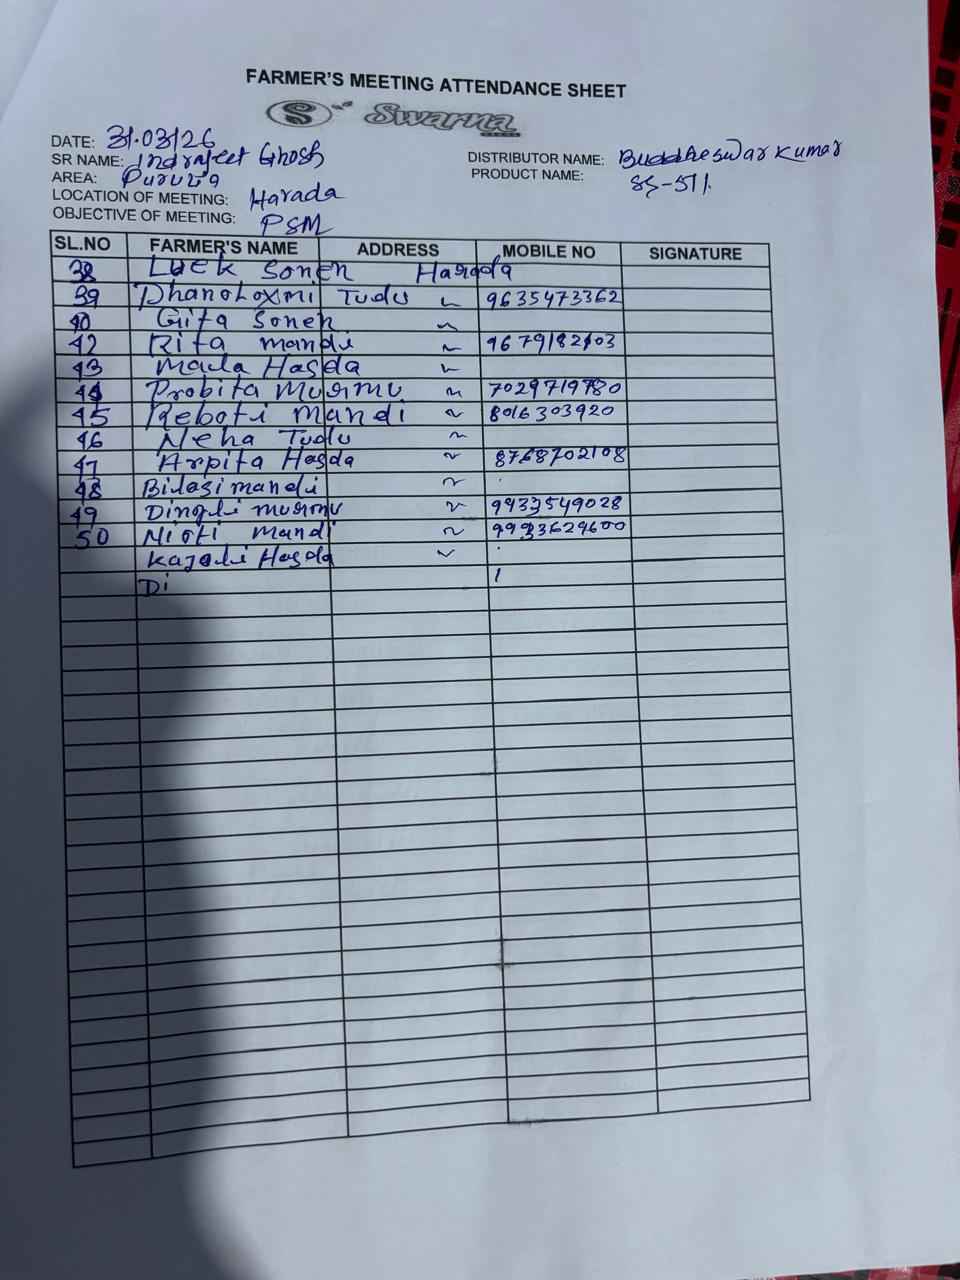 FARMER'S MEETING ATTENDANCE SHEET
S Swarna
DATE: 31.03/26
SR NAME: Indrajeet Ghosh DISTRIBUTOR NAME: Buddheswar Kumar
AREA: PRODUCT NAME: SS-511.
LOCATION OF MEETING: Harada
OBJECTIVE OF MEETING: PSM
SL.NO FARMER'S NAME ADDRESS MOBILE NO SIGNATURE
38 Soren Harada
39 Dhanoloxmi Tudu ~ 9635473362
40 Gita Soren ~
42 Rita mandi ~
43 Hasda ~
44 Probita Murmu ~ 7029719780
45 Reboti Mandi ~ 8016303920
46 Neha Tudu ~
47 Arpita Hasda ~ 8768702108
48 Bilasi mandi ~
49 murmu ~ 9933549028
50 Mandi ~ 9933629600
Kajali Hasda ~
Di